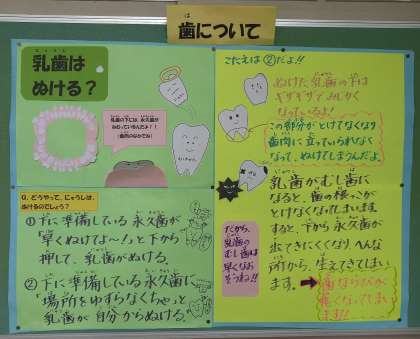 歯について
乳歯は
ぬける?
乳歯の下には、永久歯が
Q. どうやって、にゅうしは、
ぬけるのでしょう?
①下に準備している永久歯が
「早くぬけてよ〜!」と下から
押して、乳歯がぬける。
②下に準備している永久歯に
「場所をゆずらなくちゃ」と
乳歯が自分からぬける。
こたえは②だよ!!
ぬけた乳歯の下は
ギザギザでみじかく
なっているよ!
この部分がとけてなくなり
歯肉に立っていられなく
なって、ぬけてしまうんだよ。
乳歯がむし歯に
なると、歯の根っこが
とけなくなってしまいます。
すると、下から永久歯が
出てきにくくなり、へんな
所から、生えてきてしまい
ます。
歯ならびが
悪くなってしまい
ます!!
だから、
乳歯の
むし歯は
早くなお
そうね!!